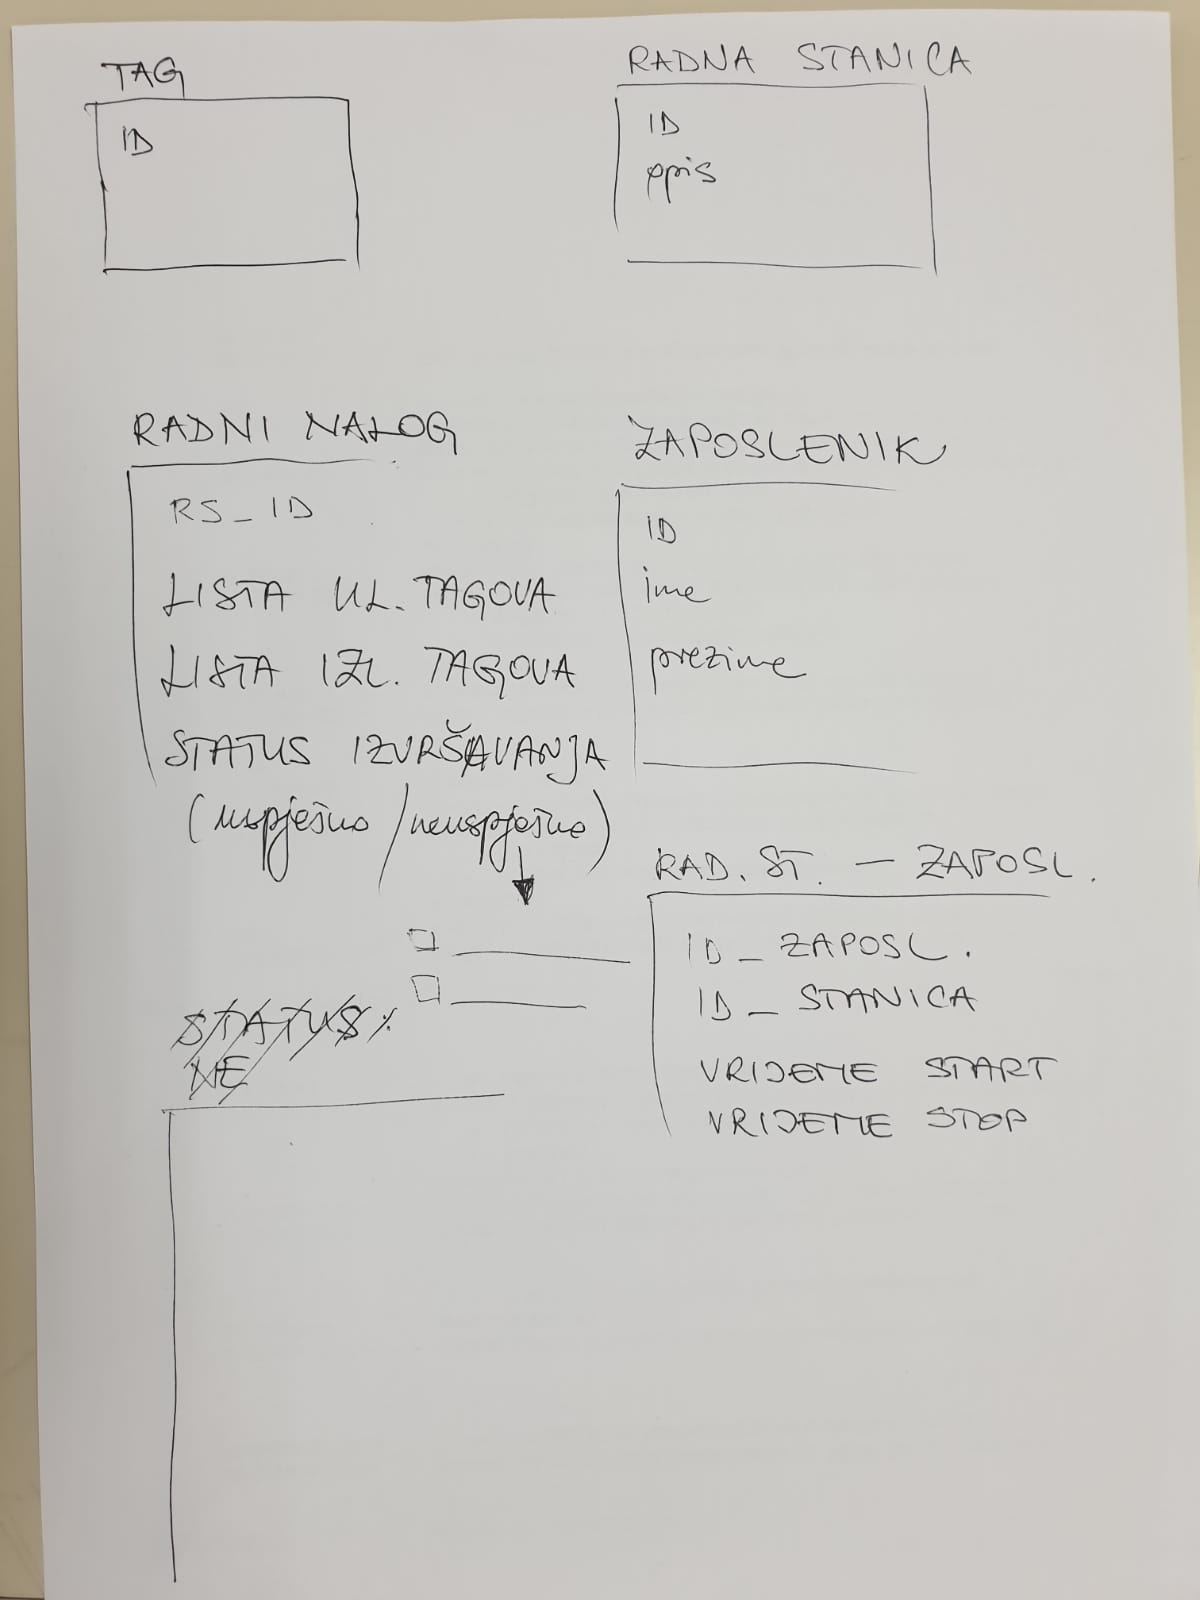 TAG
ID
RADNA STANICA
ID
opis
RADNI NALOG
RS_ID
LISTA UL. TAGOVA
LISTA IZL. TAGOVA
STATUS IZVRŠAVANJA
(uspješno / neuspješno)
ZAPOSLENIK
ID
ime
prezime
STATUS
NE
RAD. ST. - ZAPOSL.
ID_ZAPOSL.
ID_STANICA
VRIJEME START
VRIJEME STOP